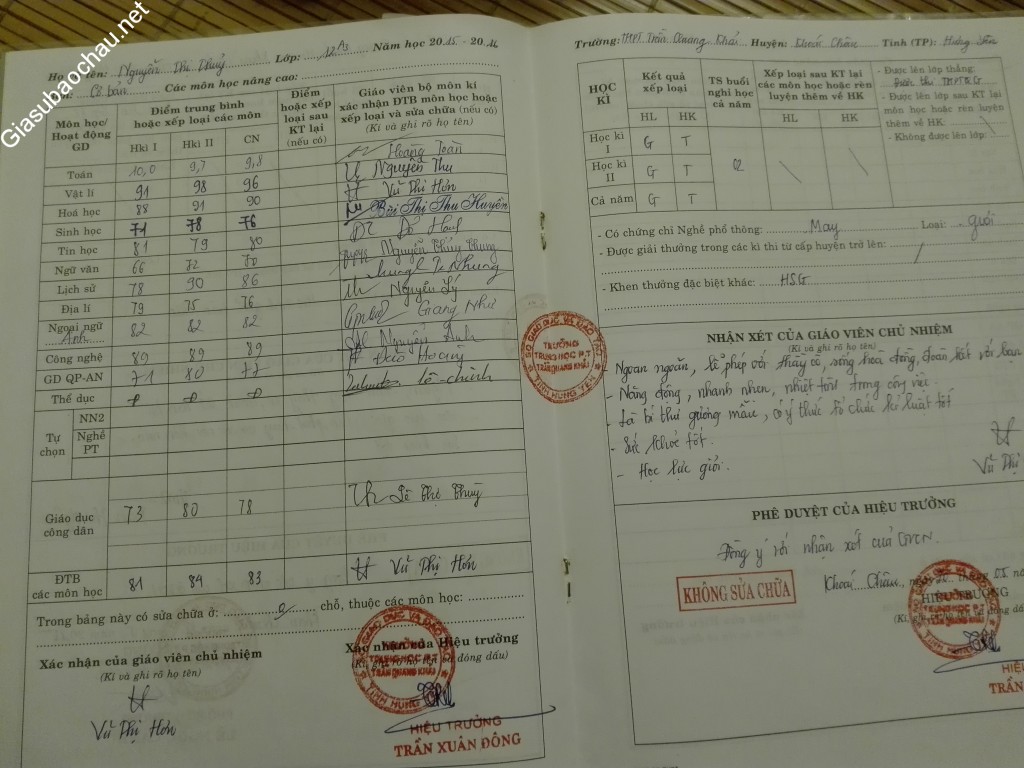 Giasubaochau.net
Họ và tên: Nguyễn Thị Thuỷ Lớp: 12A3 Năm học 2015 - 2016
Ban: Cơ bản Các môn học nâng cao:
Môn học/ Hoạt động GD
Điểm trung bình hoặc xếp loại các môn
Hki I Hki II CN
Điểm hoặc xếp loại sau KT lại (nếu có)
Giáo viên bộ môn kí xác nhận ĐTB môn học hoặc xếp loại và sửa chữa (nếu có)
(Kí và ghi rõ họ tên)
Toán 10,0 9,7 9,8 Hoàng Toàn
Vật lí 91 98 96 Nguyễn Thu
Hoá học 88 91 90 Vũ Thị Hơn
Sinh học 71 78 76 Bùi Thị Thu Huyền
Tin học 81 79 80 Đỗ
Ngữ văn 66 72 70 Nguyễn Thùy Nhung
Lịch sử 78 90 86 Nhung
Địa lí 79 75 76 Nguyễn Lý
Ngoại ngữ Anh 82 82 82 Giang Như
Công nghệ 89 89 89 Nguyễn Anh
GD QP-AN 71 80 77 Đào
Thể dục Đ Đ Đ
Tự chọn
NN2
Nghề PT
Giáo dục công dân 73 80 78 Lê Thị Thuỷ
ĐTB các môn học 81 84 83 Vũ Thị Hơn
Trong bảng này có sửa chữa ở: 0 chỗ, thuộc các môn học:
Xác nhận của giáo viên chủ nhiệm
(Kí và ghi rõ họ tên)
Vũ Thị Hơn
Xác nhận của Hiệu trưởng
(Kí, ghi rõ họ tên và đóng dấu)
SỞ GIÁO DỤC VÀ ĐÀO TẠO
TRƯỜNG
TRUNG HỌC P.T
TRẦN QUANG KHẢI
TỈNH HƯNG YÊN
HIỆU TRƯỞNG
TRẦN XUÂN ĐÔNG
Trường: THPT Trần Quang Khải Huyện: Khoái Châu Tỉnh (TP): Hưng Yên
HỌC KÌ
Kết quả xếp loại
HL HK
TS buổi nghỉ học cả năm
Xếp loại sau KT lại các môn học hoặc rèn luyện thêm về HK
HL HK
- Được lên lớp thẳng:
thi THPTQG
- Được lên lớp sau KT lại môn học hoặc rèn luyện thêm về HK:
- Không được lên lớp:
Học kì I G T
Học kì II G T 02
Cả năm G T
- Có chứng chỉ Nghề phổ thông: May Loại: giỏi
- Được giải thưởng trong các kì thi từ cấp huyện trở lên:
- Khen thưởng đặc biệt khác: HSG
NHẬN XÉT CỦA GIÁO VIÊN CHỦ NHIỆM
(Kí và ghi rõ họ tên)
- Ngoan ngoãn, lễ phép với thầy cô, sống hoà đồng, đoàn kết với bạn
- Năng động, nhanh nhẹn, nhiệt tình trong công việc.
- Là bí thư gương mẫu, có ý thức tổ chức kỉ luật tốt
- Sức khoẻ tốt.
- Học lực giỏi.
Vũ Thị
SỞ GIÁO DỤC VÀ ĐÀO TẠO
TRƯỜNG
TRUNG HỌC P.T
TRẦN QUANG KHẢI
TỈNH HƯNG YÊN
PHÊ DUYỆT CỦA HIỆU TRƯỞNG
Đồng ý với nhận xét của GVCN.
KHÔNG SỬA CHỮA
Khoái Châu, ngày 20 tháng 05
HIỆU TRƯỞNG
TRƯỜNG
TRUNG HỌC P.T
TRẦN QUANG KHẢI
HIỆU
TRẦN